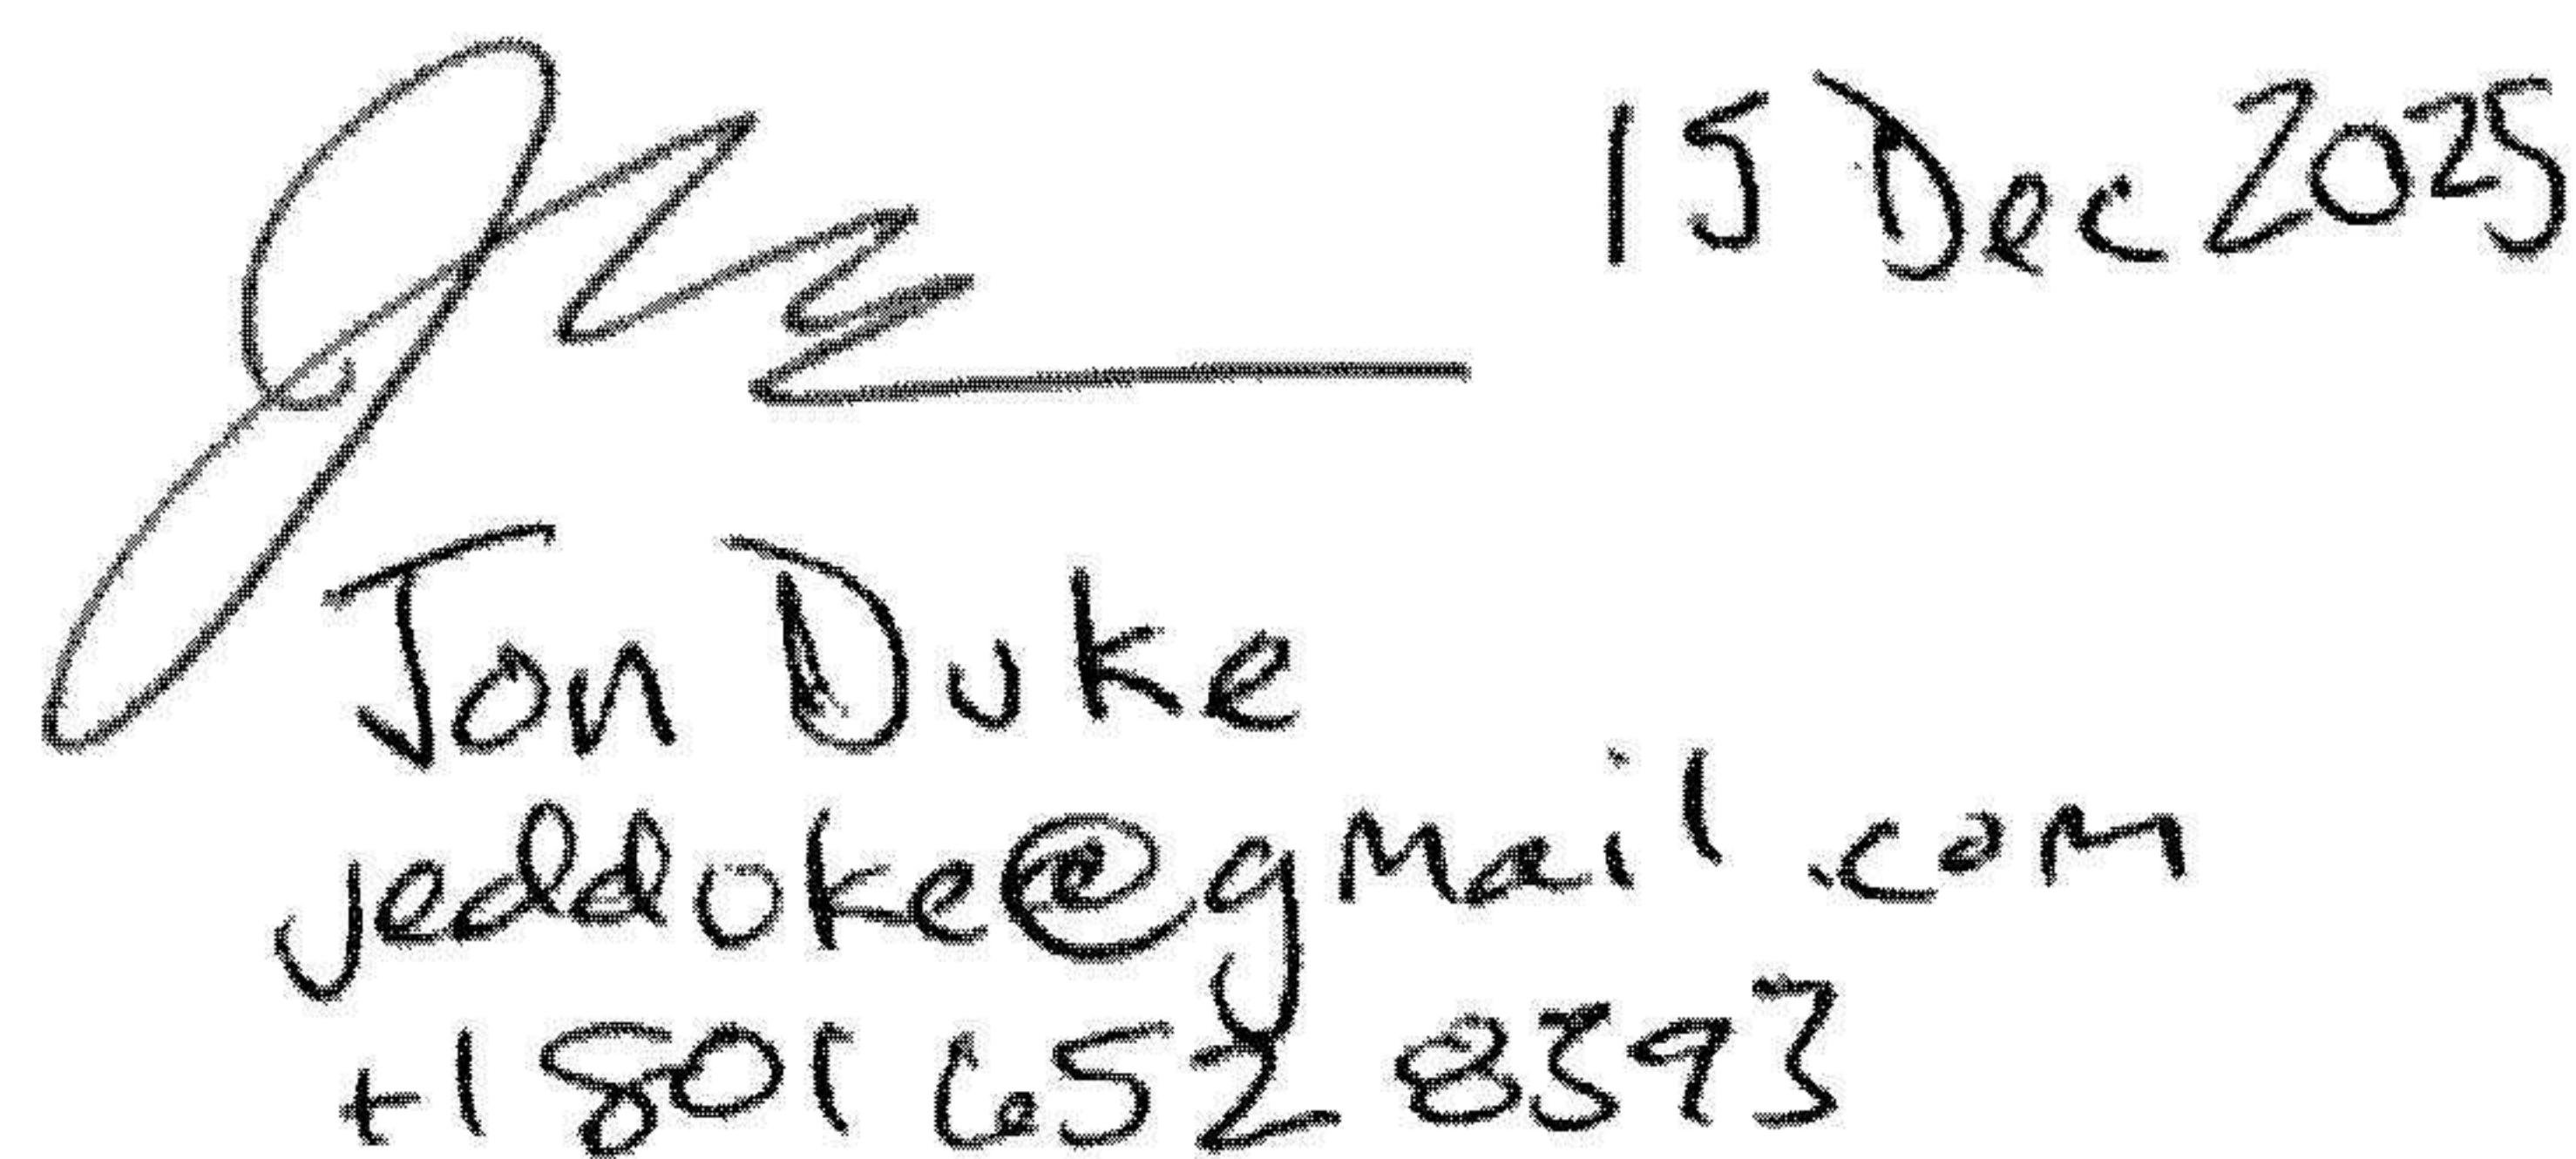 15 Dec 2025
Jon Duke
jedduke@gmail.com
+1 801 652 8393